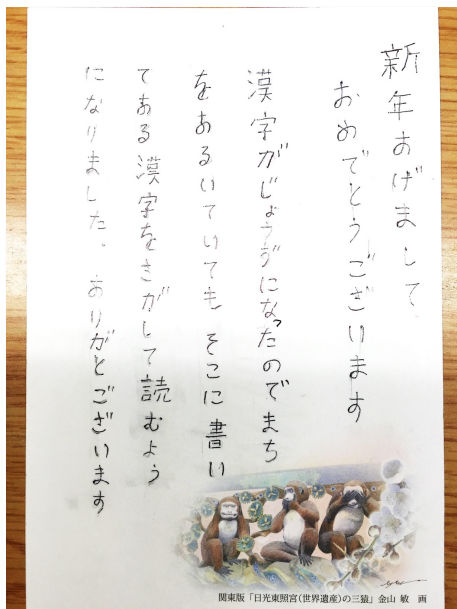 新年あげまして
おめでとうございます
漢字がじょうずになったのでまち
をあるいていても そこに書い
てある漢字をさがして読むよう
になりました。 ありがとございます
関東版「日光東照宮(世界遺産)の三猿」金山 敏 画